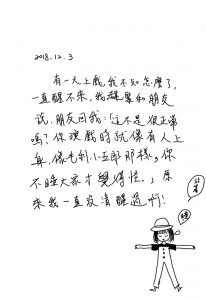 2018.12.3
有一天上戲,我不知怎麼了,
一直醒不來,我趕緊和朋友
說,朋友回我:「這不是很正常
嗎?你演戲時就像有人上
身,像毛利小五郎那樣。你
不睡大家才覺得怪。」原
來我一直沒清醒過啊!